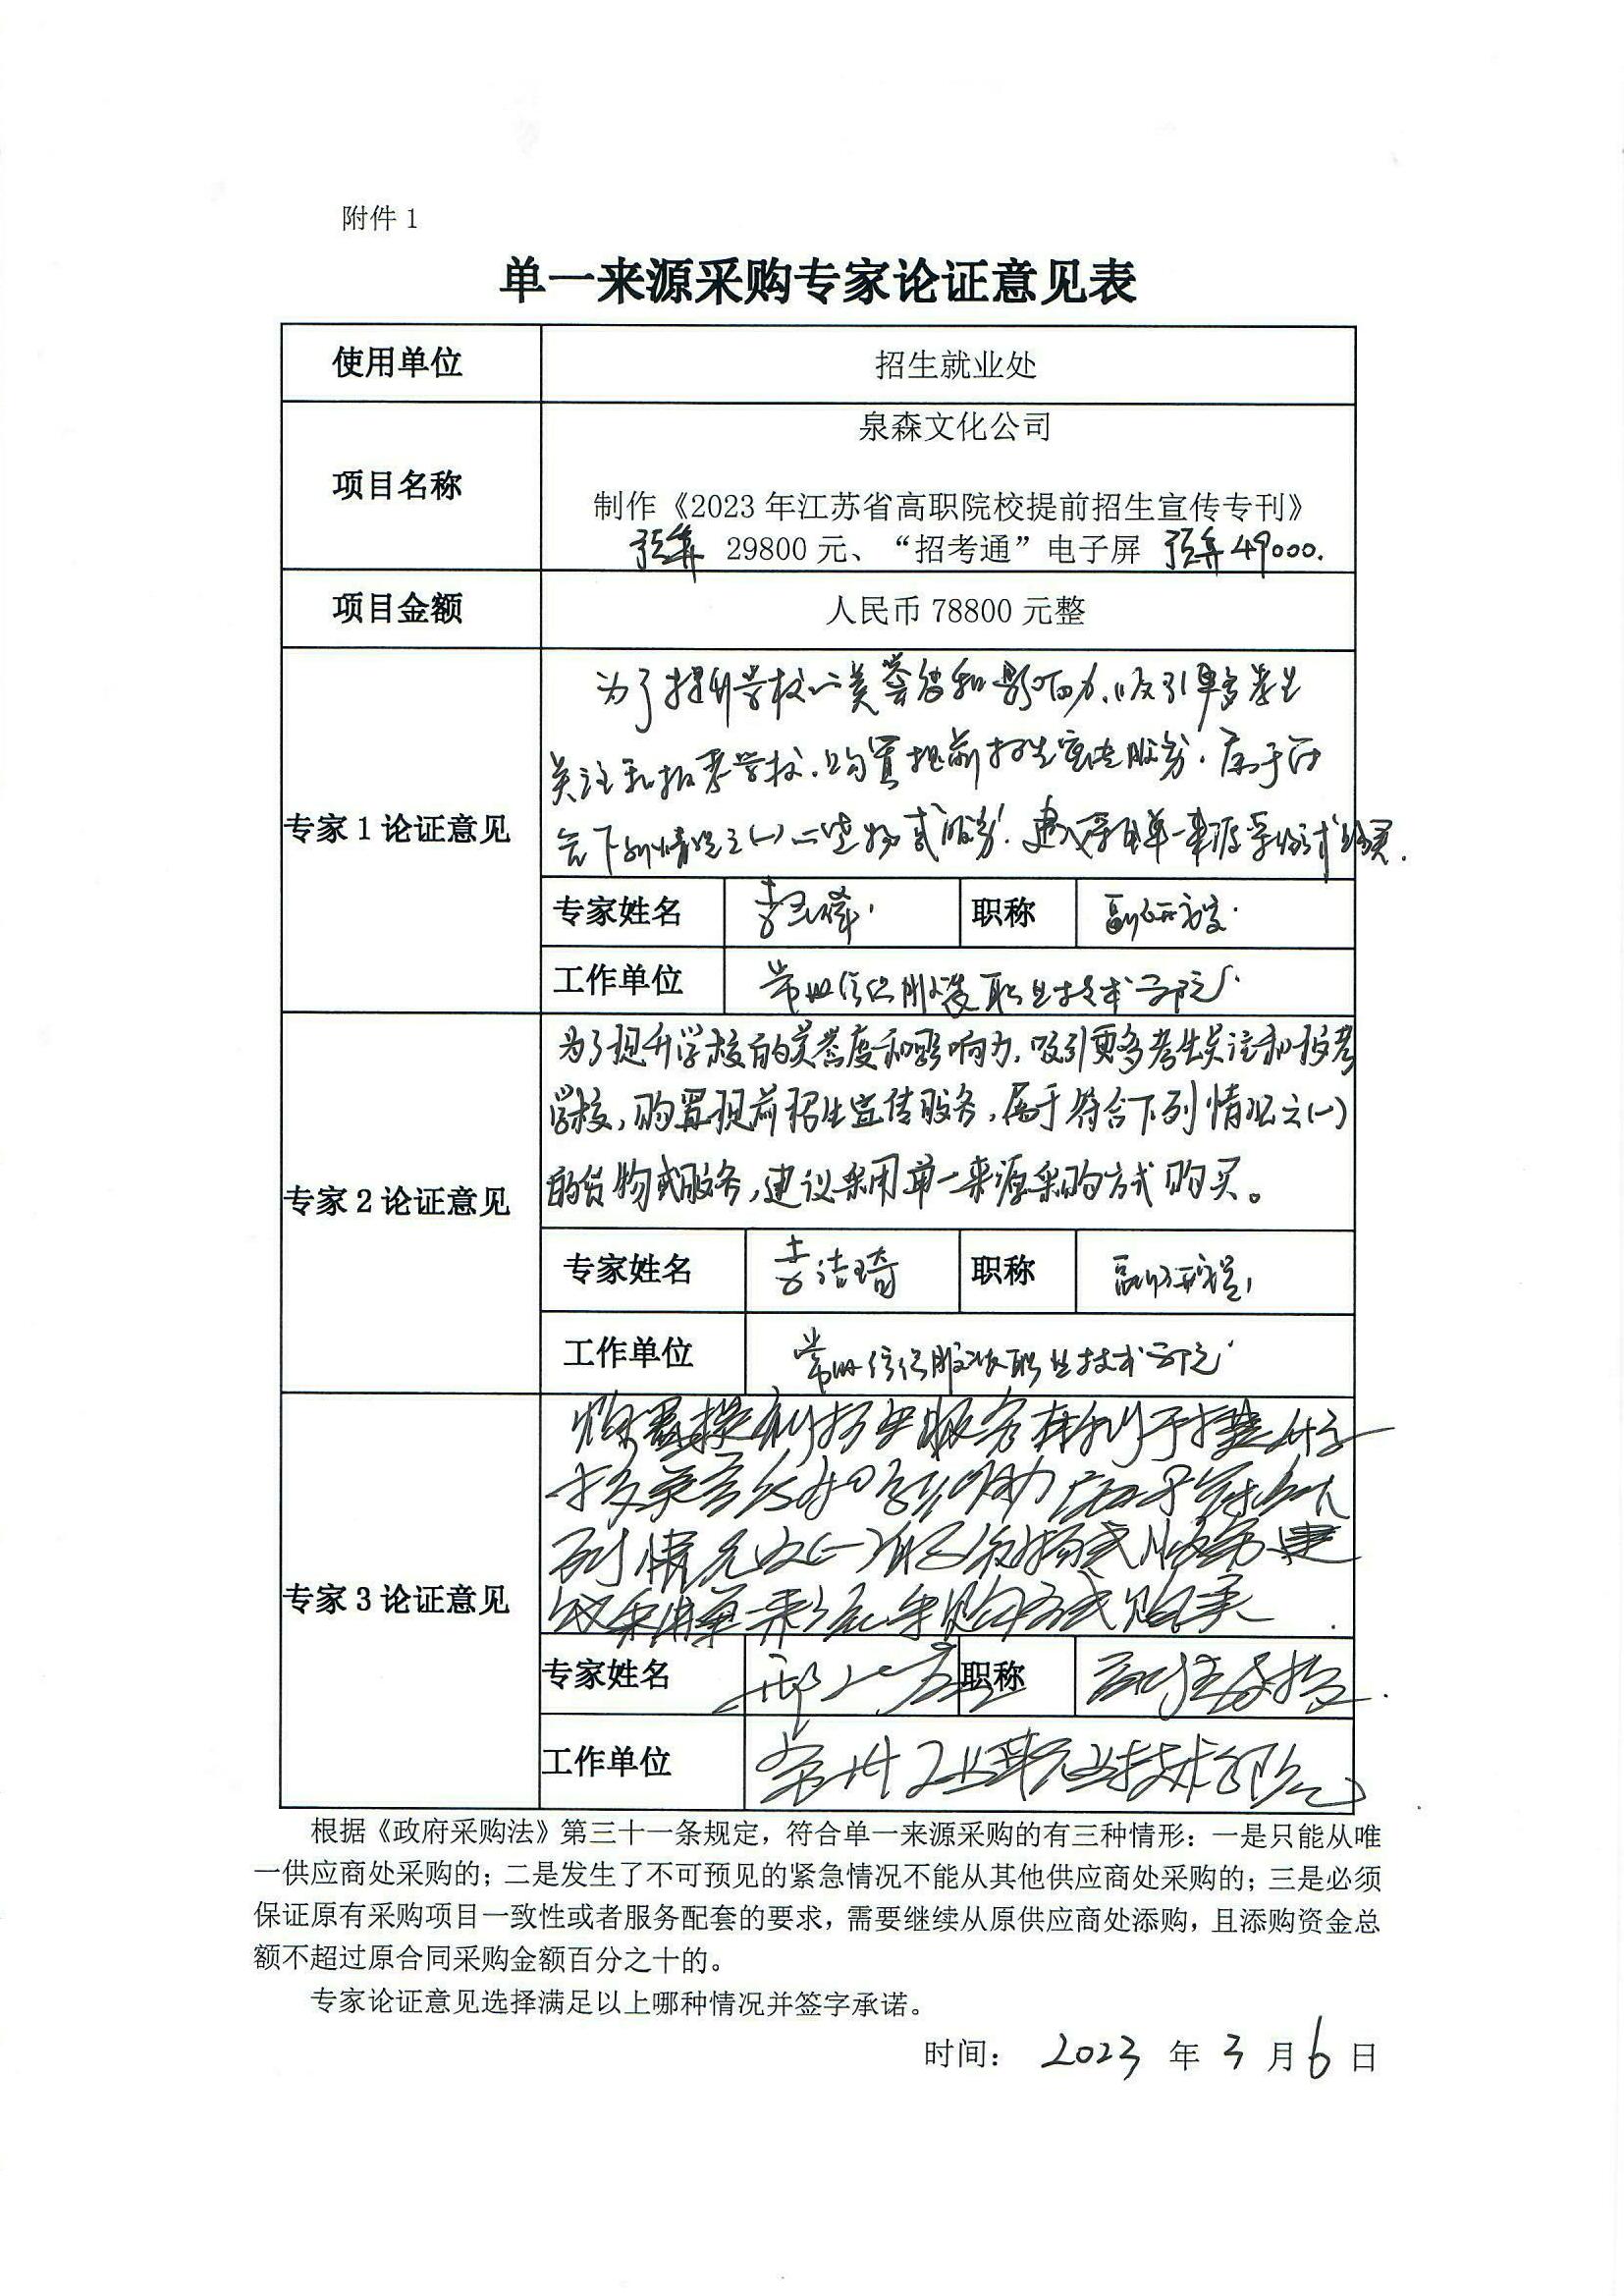 附件 1
单一来源采购专家论证意见表
使用单位
招生就业处
项目名称
泉森文化公司
制作《2023 年江苏省高职院校提前招生宣传专刊》
预算 29800 元、“招考通”电子屏 预算 49000.
项目金额
人民币 78800 元整
专家 1 论证意见
为了提升学校的美誉度和影响力,吸引更多考生
关注和报考学校,购置提前招生宣传服务,属于符
合下列情况之(一)的货物或服务.建议采用单一来源采购方式购买.
专家姓名
职称
副研究员.
工作单位
常州纺织服装职业技术学院.
专家 2 论证意见
为了提升学校的美誉度和影响力,吸引更多考生关注和报考
学校,购置提前招生宣传服务,属于符合下列情况之(一)
的货物或服务,建议采用单一来源采购方式购买。
专家姓名
李洁琦
职称
工作单位
常州纺织服装职业技术学院
专家 3 论证意见
列情况之(一)的货物或服务 建
议采用单一来源采购方式购买
专家姓名
职称
工作单位
常州工业职业技术学院
根据《政府采购法》第三十一条规定，符合单一来源采购的有三种情形：一是只能从唯
一供应商处采购的；二是发生了不可预见的紧急情况不能从其他供应商处采购的；三是必须
保证原有采购项目一致性或者服务配套的要求，需要继续从原供应商处添购，且添购资金总
额不超过原合同采购金额百分之十的。
专家论证意见选择满足以上哪种情况并签字承诺。
时间： 2023 年 3 月 6 日